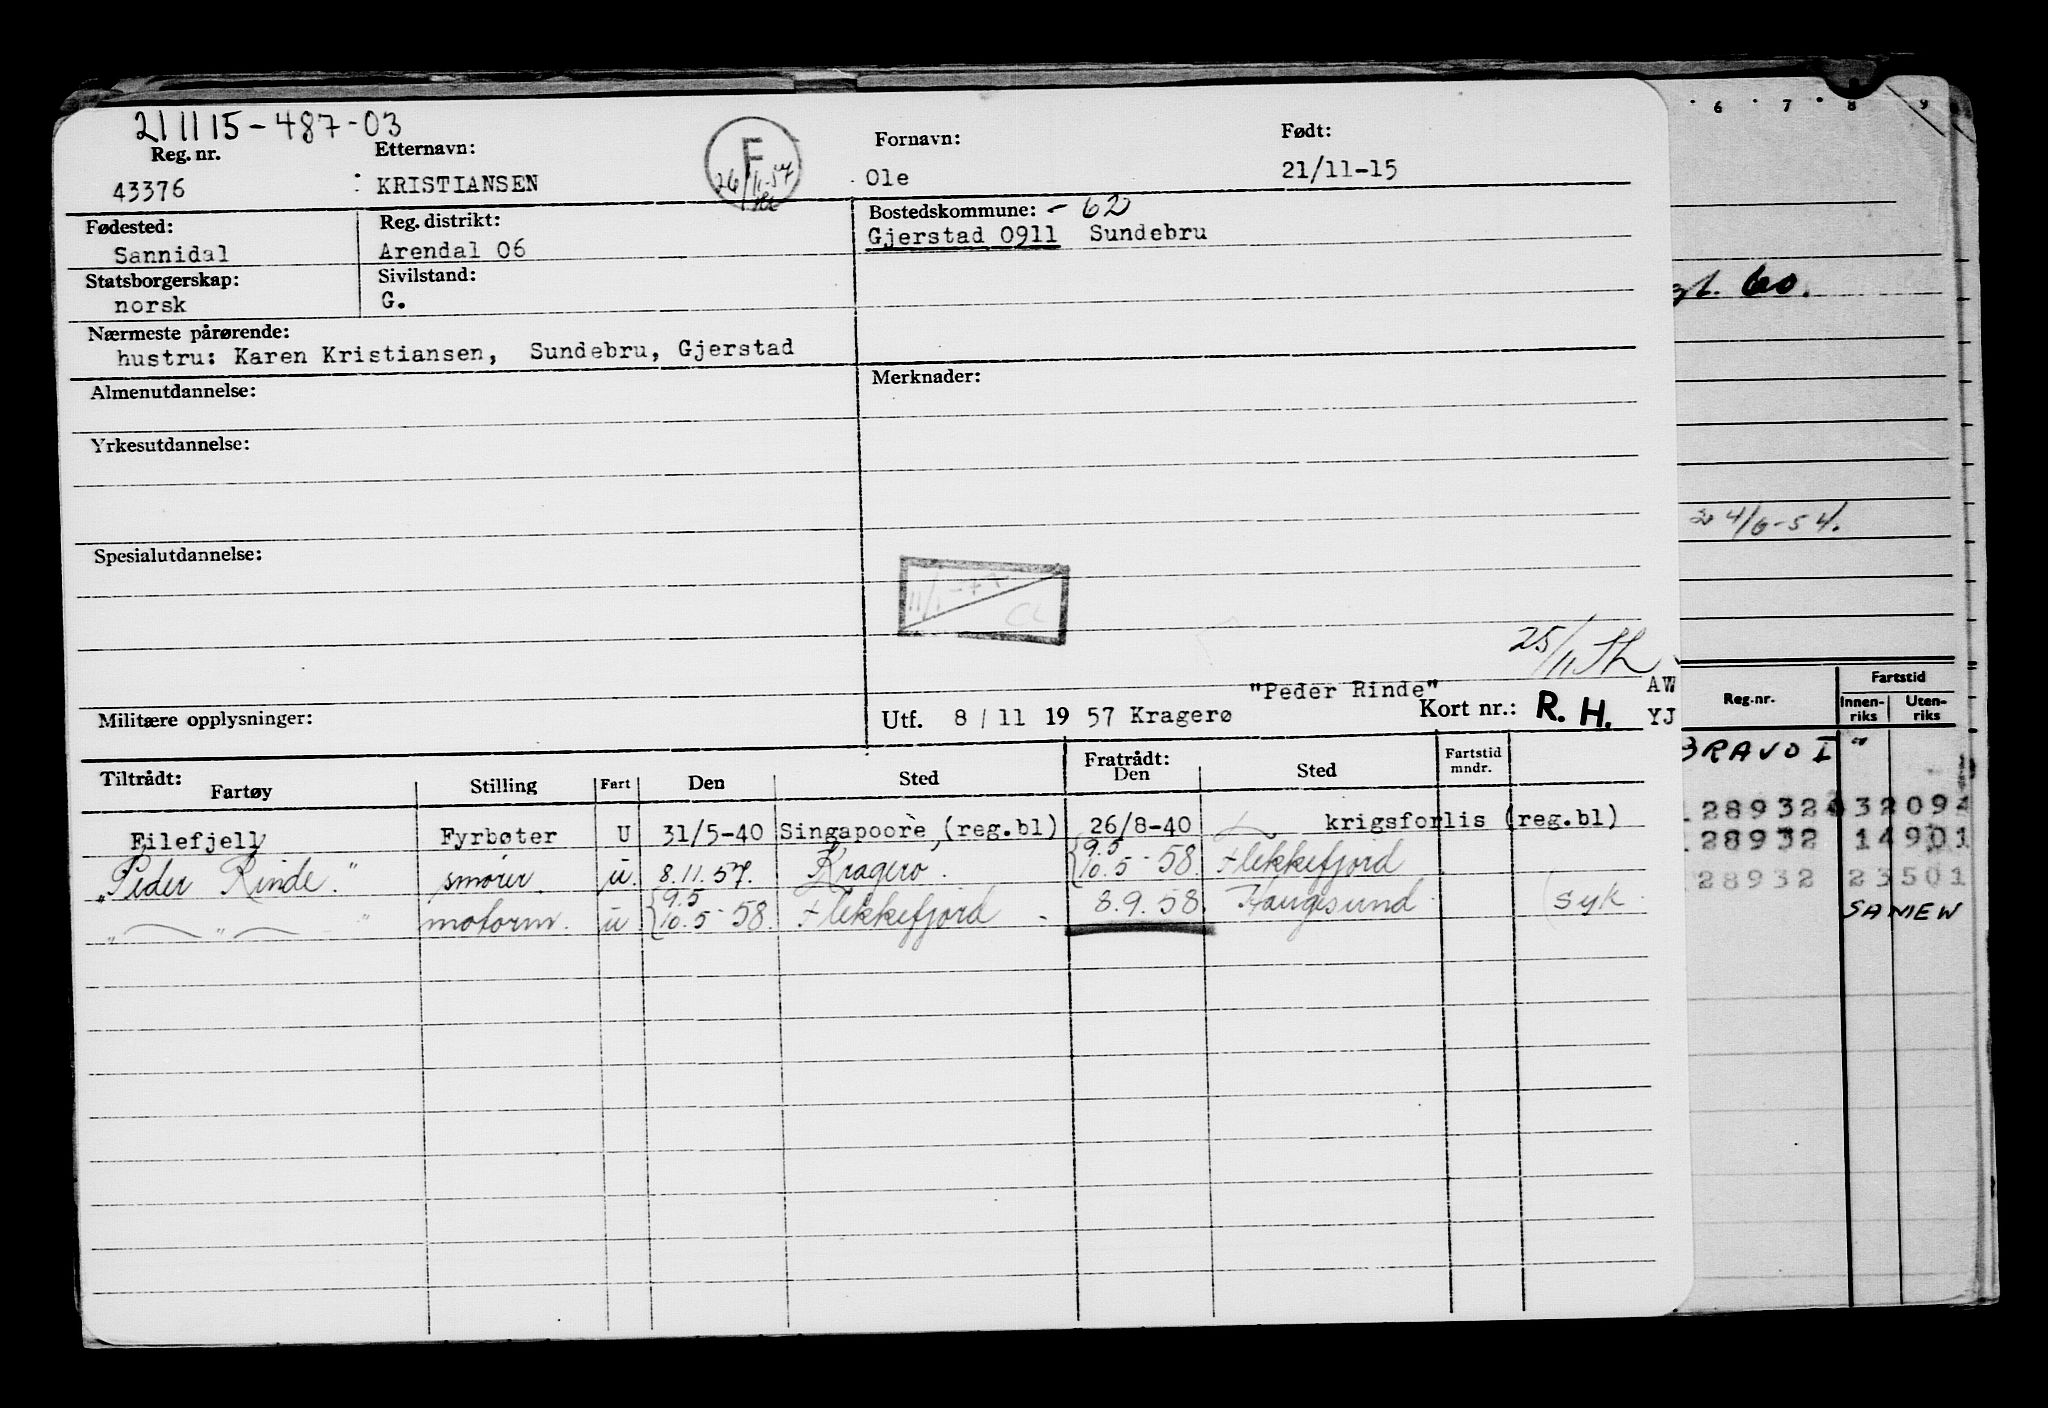 21 11 15-487-03
Reg. nr. Etternavn: Fornavn: Født:
43376 KRISTIANSEN F Ole 21/11-15
26/11-57
Fødested: Reg. distrikt: Bostedskommune: - 62
Sannidal Arendal 06 Gjerstad 0911 Sundebru
Statsborgerskap: Sivilstand:
norsk G.
Nærmeste pårørende:
hustru: Karen Kristiansen, Sundebru, Gjerstad
Almenutdannelse: Merknader:
Yrkesutdannelse:
Spesialutdannelse:
11/1-77 CL
25/11
"Peder Rinde" AW
Militære opplysninger: Utf. 8 / 11 19 57 Kragerø Kort nr.: R. H. YJ
Tiltrådt: Fratrådt:
Fartøy Stilling Fart Den Sted Den Sted Fartstid mndr.
Filefjell Fyrbøter U 31/5-40 Singapoore, (reg.bl) 26/8-40 krigsforlis (reg.bl)
"Peder Rinde." smører. u. 8.11.57. Kragerø. {9.5 10.5-58. Flekkefjord
" " " motorm. u {9.5 10.5-58. Flekkefjord 8.9.58. Haugesund (syk
6 7 8 9
60.
24/6-54.
Reg.nr. Fartstid
Innenriks Utenriks
BRAVO I "
289324 32094
28932 14901
28932 23501
SANIEW